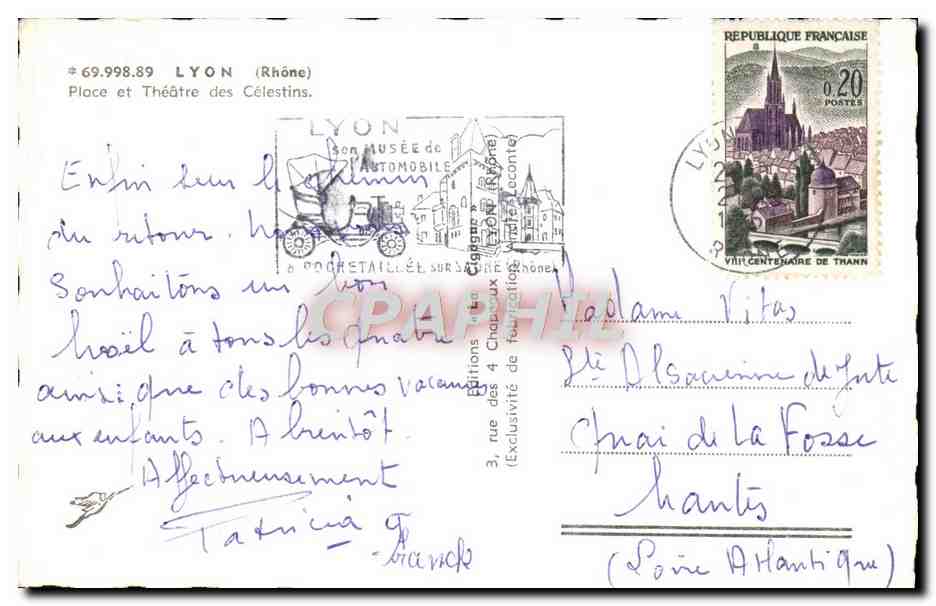 * 69.998.89 LYON (Rhône)
Place et Théâtre des Célestins.
LYON
son MUSÉE de
l'AUTOMOBILE
à ROCHETAILLÉE SUR SAONE (Rhône)
Enfin sur le chemin
du retour. Nous vous
Souhaitons un bon
Noël à tous les quatre
ainsi que des bonnes vacances
aux enfants. A bientôt.
Affectueusement
Patricia &
Franck
Editions "La Cigogne"
3, rue des 4 Chapeaux - LYON (Rhône)
(Exclusivité de fabrication André Leconte)
RÉPUBLIQUE FRANÇAISE
0,20
POSTES
VIIIe CENTENAIRE DE THANN
LYON
Madame Vitas
Sté Alsacienne de Jute
Quai de La Fosse
Nantes
(Loire Atlantique)
CPAPHIL